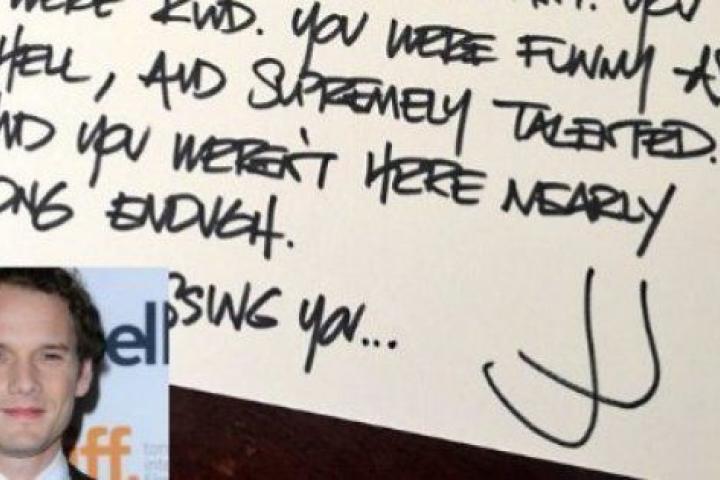 WERE KIND. YOU WERE FUNNY AS
HELL, AND SUPREMELY TALENTED.
AND YOU WEREN'T HERE NEARLY
ONG ENOUGH.
SSING YOU...
JJ
ell
ff.